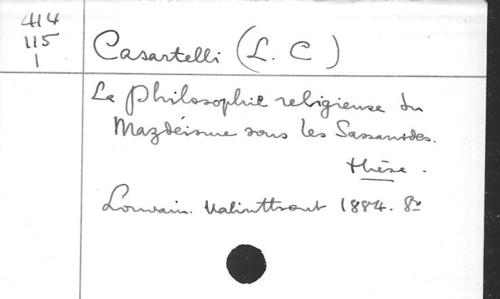 414
115
1
Casartelli (L. C)
La Philosophie religieuse du
Mazdéisme sous les Sassanides.
thèse.
Louvain. Valinthout 1884. 8º